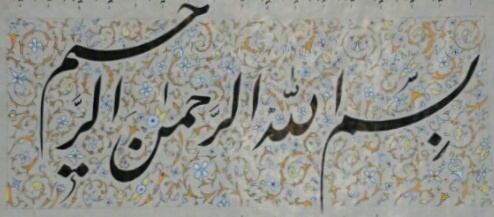 بِسْمِ اللّٰهِ الرَّحمٰنِ الرَّحیمِ